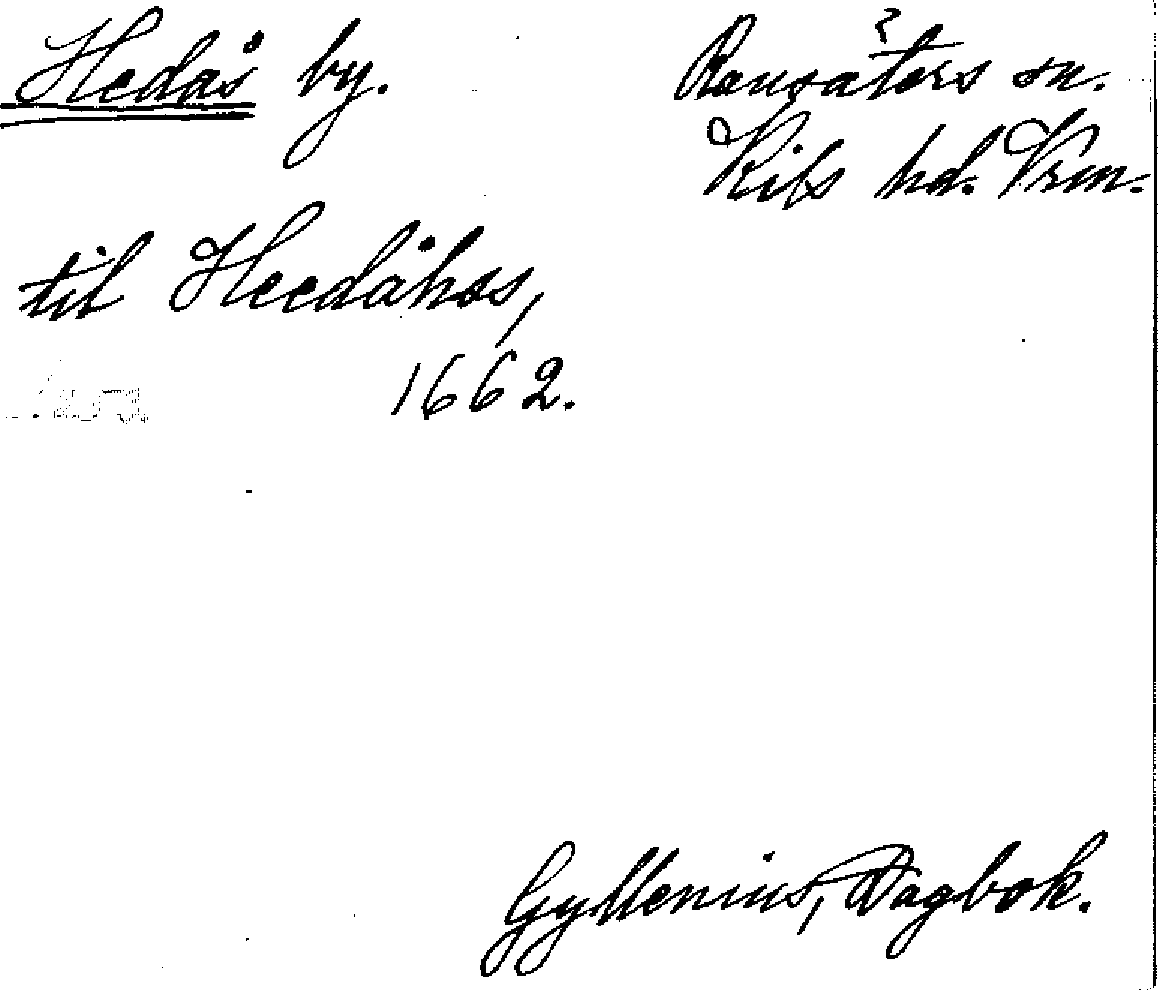 Hedås by.
Ransäters sn.
Kils hd. Vrm.
til Heedåhss,
1662.
Gyllenius, Dagbok.